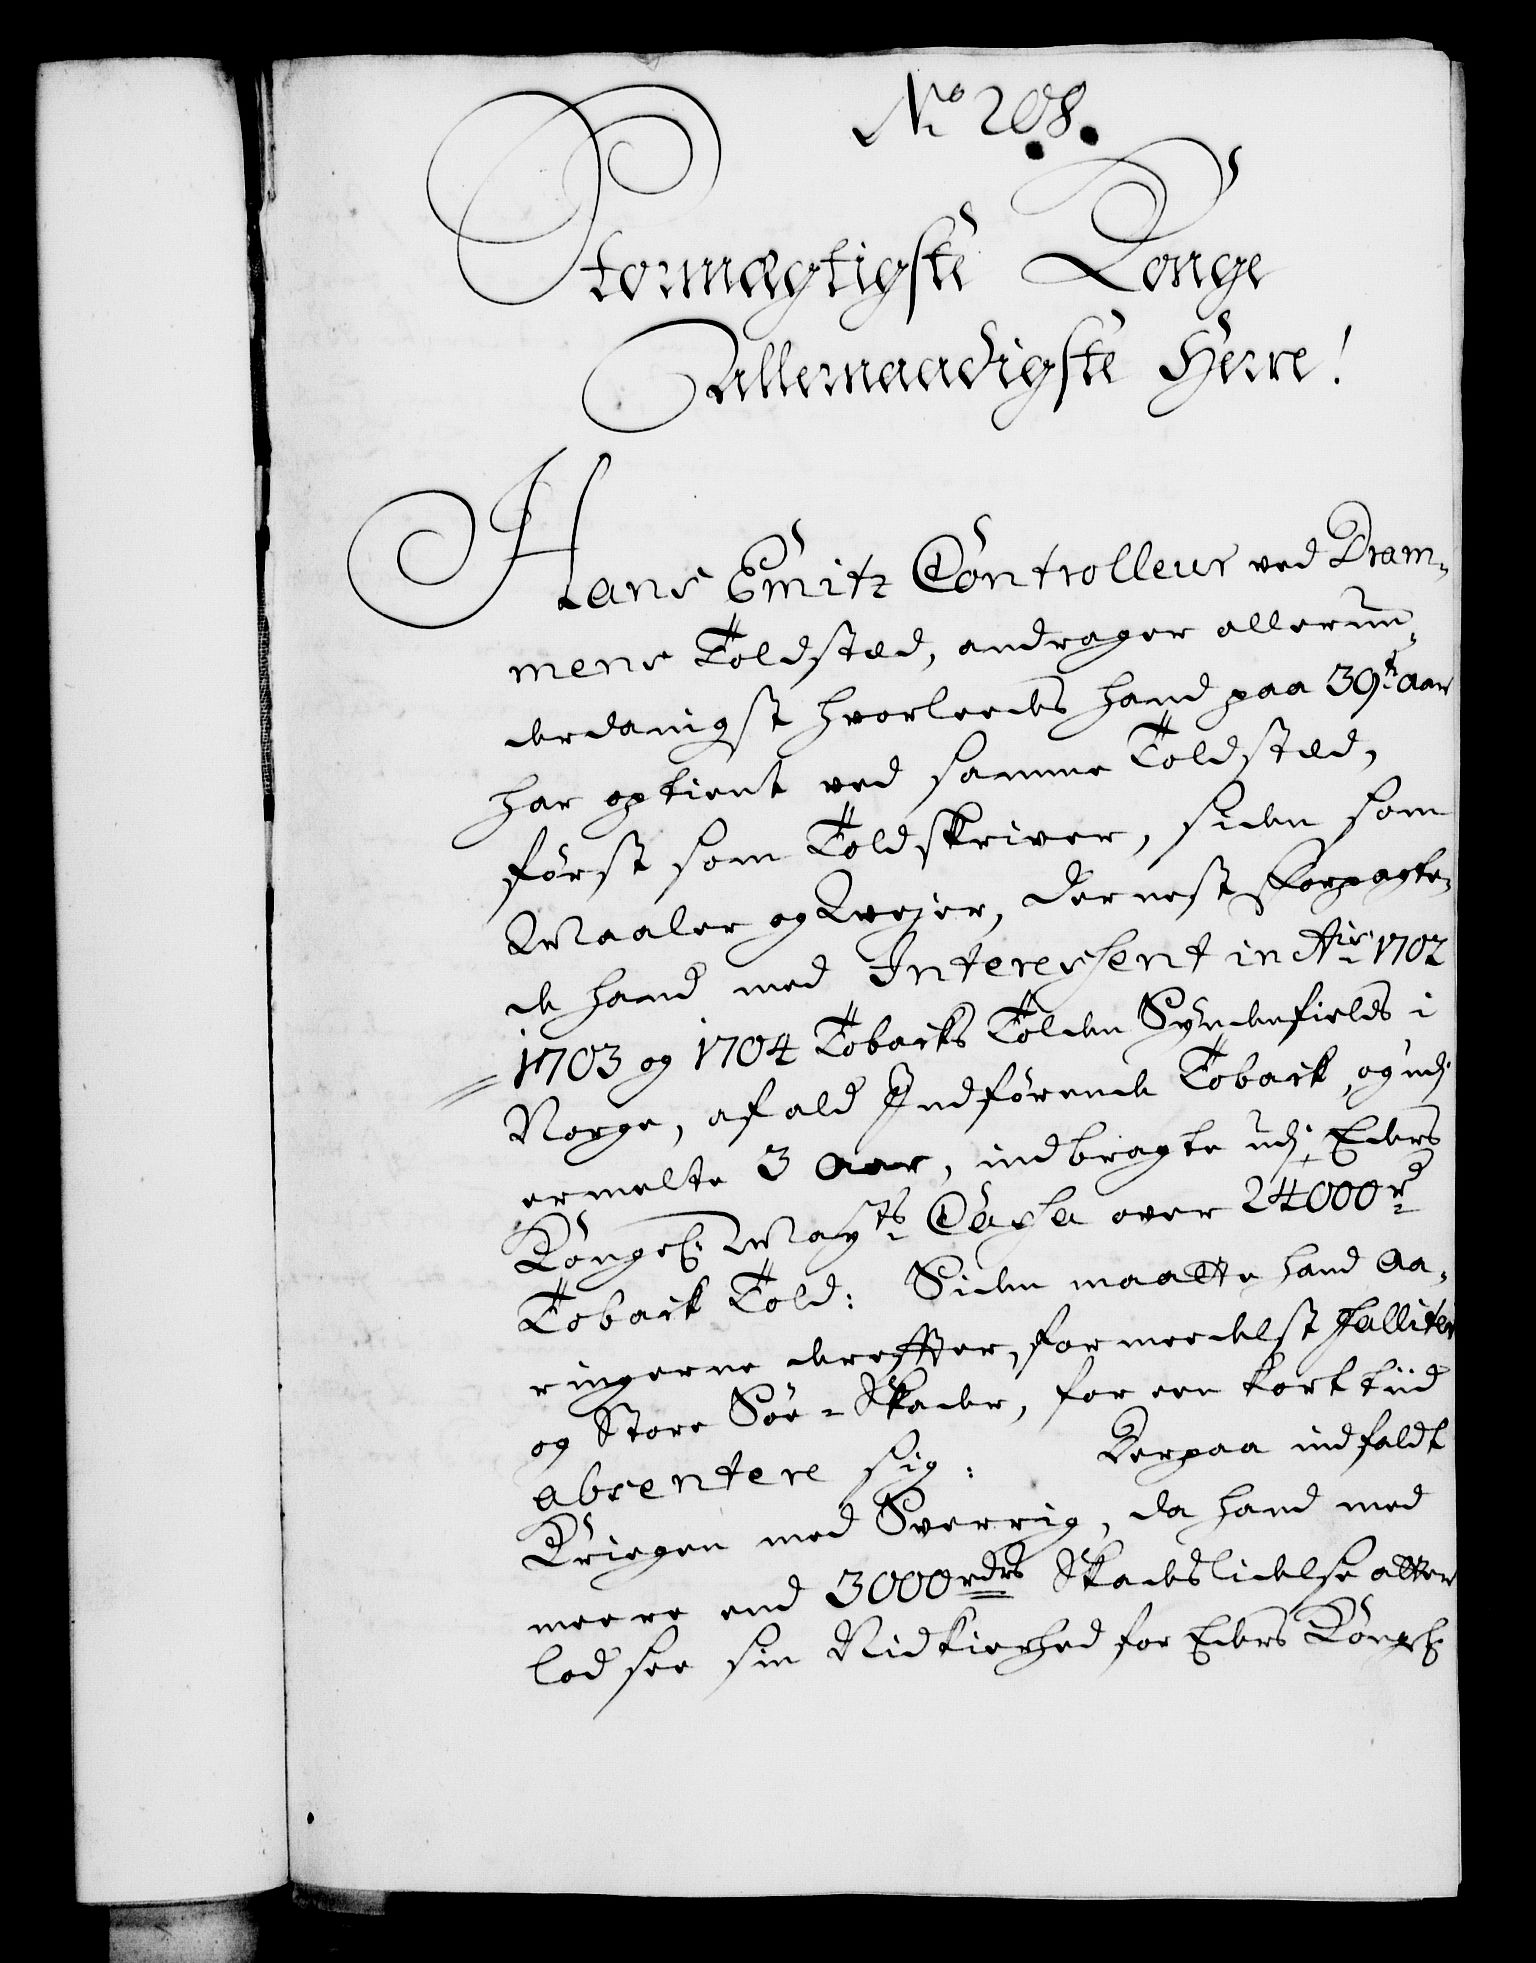 No 208.
Stormægtigste Konge
Allernaadigste Herre!
Hans Emitz Controlleur ved Dram-
mens Toldstæd, andrager allerun-
derdanigst hvorleedes hand paa 39te Aar
har optient ved samme Toldstæd,
först som Toldskriver, siden som
Maaler og Vejer, dernest forpagte-
de hand med Interessent in Ao 1702
1703 og 1704 Tobacks Tolden Syndenfields i
Norge, af ald Indförende Toback, og udj
ermelte 3 Aar, indbragte udj Eders
Kongel: Mayts Cassa over 24000 rd
Toback Told: Siden maatte hand Aa-
ringerne derefter, formeedelst falliter
og Store Söe-Skader, for een kort tiid
absentere sig: Derpaa indfaldt
Kriegen med Sverrig, da hand med
meere end 3000 rdrs Skadeslidelse atter
lod see sin Nidkierhed for Eders Kongel: